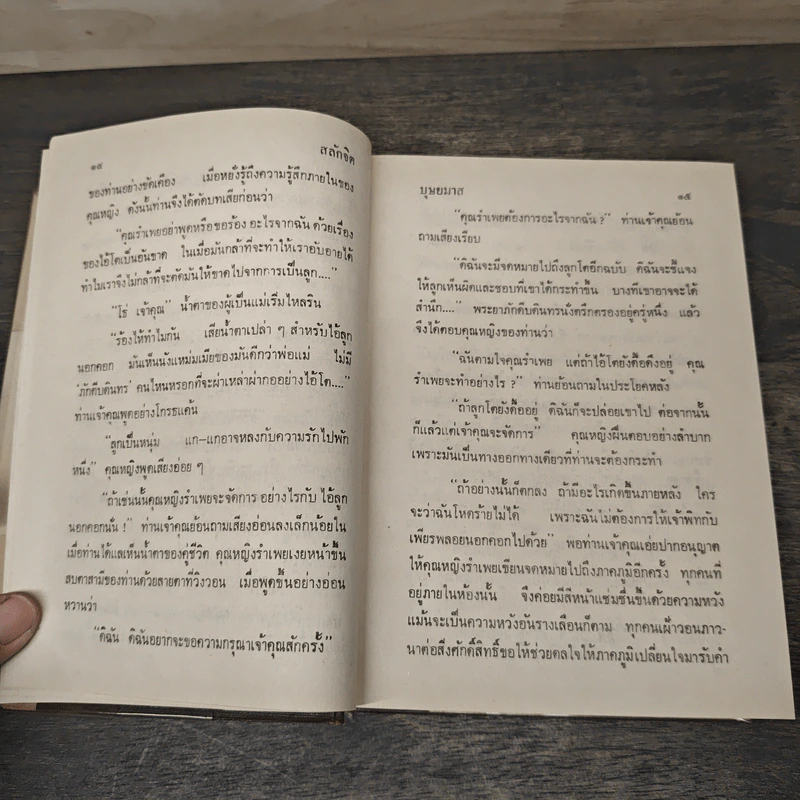 ๑๔
สลักจิต
ของท่านอย่างขัดเคือง เมื่อหยั่งรู้ถึงความรู้สึกภายในของ
คุณหญิง ดังนั้นท่านจึงได้ตัดบทเสียก่อนว่า
“คุณรำเพยอย่าพูดหรือขอร้อง อะไรจากฉัน ด้วยเรื่อง
ของไอ้โตเป็นอันขาด ในเมื่อมันกล้าที่จะทำให้เราอับอายได้
ทำไมเราจึงไม่กล้าที่จะตัดมันให้ขาดไปจากการเป็นลูก....”
“โธ่ เจ้าคุณ” น้ำตาของผู้เป็นแม่เริ่มไหลริน
“ร้องไห้ทำไมกัน เสียน้ำตาเปล่า ๆ สำหรับไอ้ลูก
นอกคอก มันเห็นนังแหม่มเมียของมันดีกว่าพ่อแม่ ไม่มี
‘ภักดีบดินทร’ คนไหนหรอกที่จะผ่าเหล่าผ่ากออย่างไอ้โต....”
ท่านเจ้าคุณพูดอย่างโกรธแค้น
“ลูกเป็นหนุ่ม แก—แกอาจหลงกับความรักไปพัก
หนึ่ง” คุณหญิงพูดเสียงอ่อย ๆ
“ถ้าเช่นนั้นคุณหญิงรำเพยจะจัดการ อย่างไรกับ ไอ้ลูก
นอกคอกนั่น !” ท่านเจ้าคุณย้อนถามเสียงอ่อนลงเล็กน้อยใน
เมื่อท่านได้แลเห็นน้ำตาของคู่ชีวิต คุณหญิงรำเพยเงยหน้าขึ้น
สบตาสามีของท่านด้วยสายตาที่วิงวอน เมื่อพูดขึ้นอย่างอ่อน
หวานว่า
“ดิฉัน ดิฉันอยากจะขอความกรุณาเจ้าคุณสักครั้ง”
บุษยมาส
๑๕
“คุณรำเพยต้องการอะไรจากฉัน ?” ท่านเจ้าคุณย้อน
ถามเสียงเรียบ
“ดิฉันจะมีจดหมายไปถึงลูกโตอีกฉบับ ดิฉันจะชี้แจง
ให้ลูกเห็นผิดและชอบที่เขาได้กระทำขึ้น บางทีเขาอาจจะได้
สำนึก....” พระยาภักดีบดินทรนั่งตรึกตรองอยู่ครู่หนึ่ง แล้ว
จึงได้ตอบคุณหญิงของท่านว่า
“ฉันตามใจคุณรำเพย แต่ถ้าไอ้โตยังดื้อดึงอยู่ คุณ
รำเพยจะทำอย่างไร ?” ท่านย้อนถามในประโยคหลัง
“ถ้าลูกโตยังดื้ออยู่ ดิฉันก็จะปล่อยเขาไป ต่อจากนั้น
ก็แล้วแต่เจ้าคุณจะจัดการ” คุณหญิงฝืนตอบอย่างลำบาก
เพราะมันเป็นทางออกทางเดียวที่ท่านจะต้องกระทำ
“ถ้าอย่างนั้นก็ตกลง ถ้ามีอะไรเกิดขึ้นภายหลัง ใคร
จะว่าฉันโหดร้ายไม่ได้ เพราะฉันไม่ต้องการให้เจ้าพิทกับ
เพียรพลอยนอกคอกไปด้วย” พอท่านเจ้าคุณเอ่ยปากอนุญาต
ให้คุณหญิงรำเพยเขียนจดหมายไปถึงภาคภูมิอีกครั้ง ทุกคนที่
อยู่ภายในห้องนั้น จึงค่อยมีสีหน้าแช่มชื่นขึ้นด้วยความหวัง
แม้นจะเป็นความหวังอันรางเลือนก็ตาม ทุกคนเฝ้าวอนภาว-
นาต่อสิ่งศักดิ์สิทธิ์ขอให้ช่วยดลใจให้ภาคภูมิเปลี่ยนใจมารับคำ